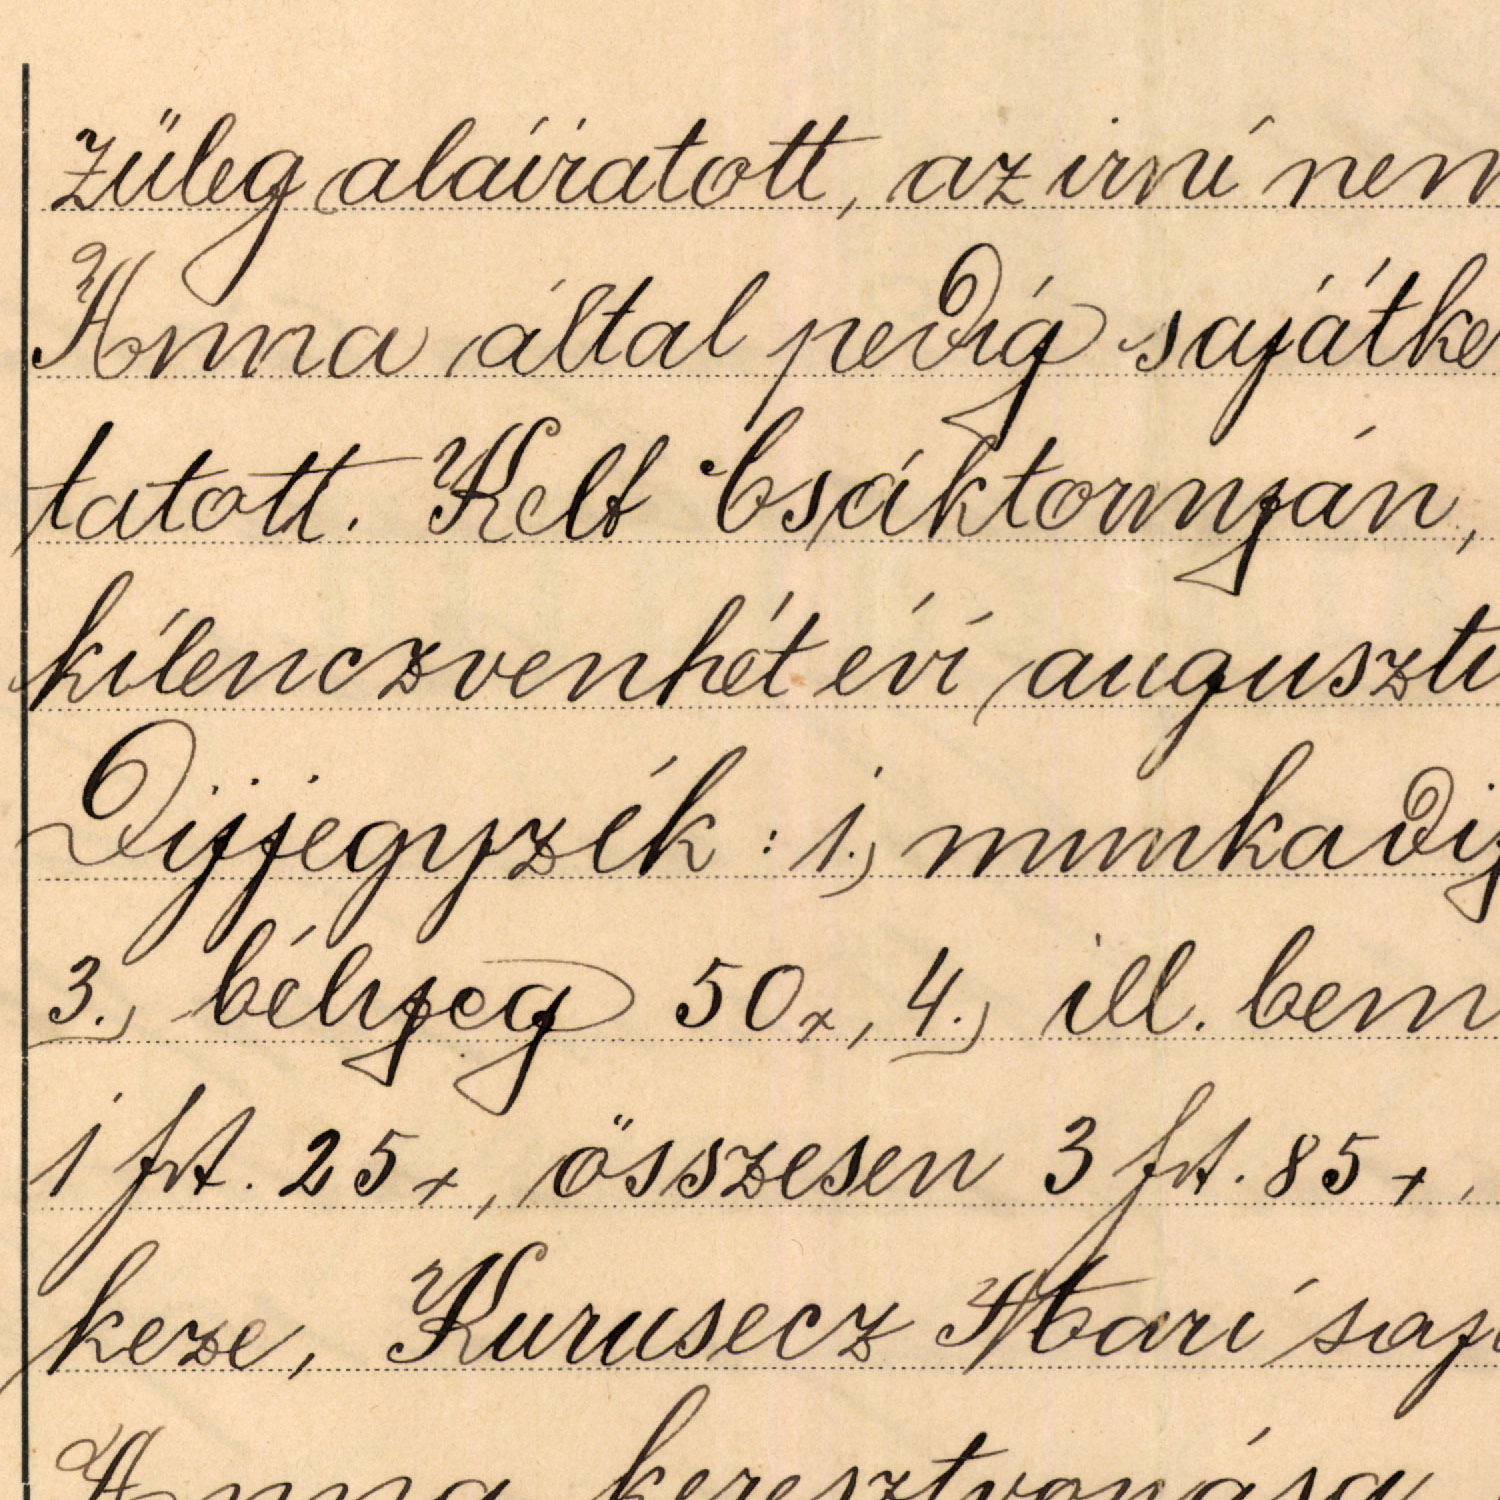 züleg aláíratott, az irni nem
Anna által pedig sajátke
tatott. Kelt Csáktornyán,
kilenczvenhét évi auguszti
Dijjegyzék: 1., munkadij
3., bélyeg 50x, 4., ill. bem
1 frt. 25x, összesen 3 frt. 85x,
keze, Kurusecz Mari saj
Anna keresztvonása